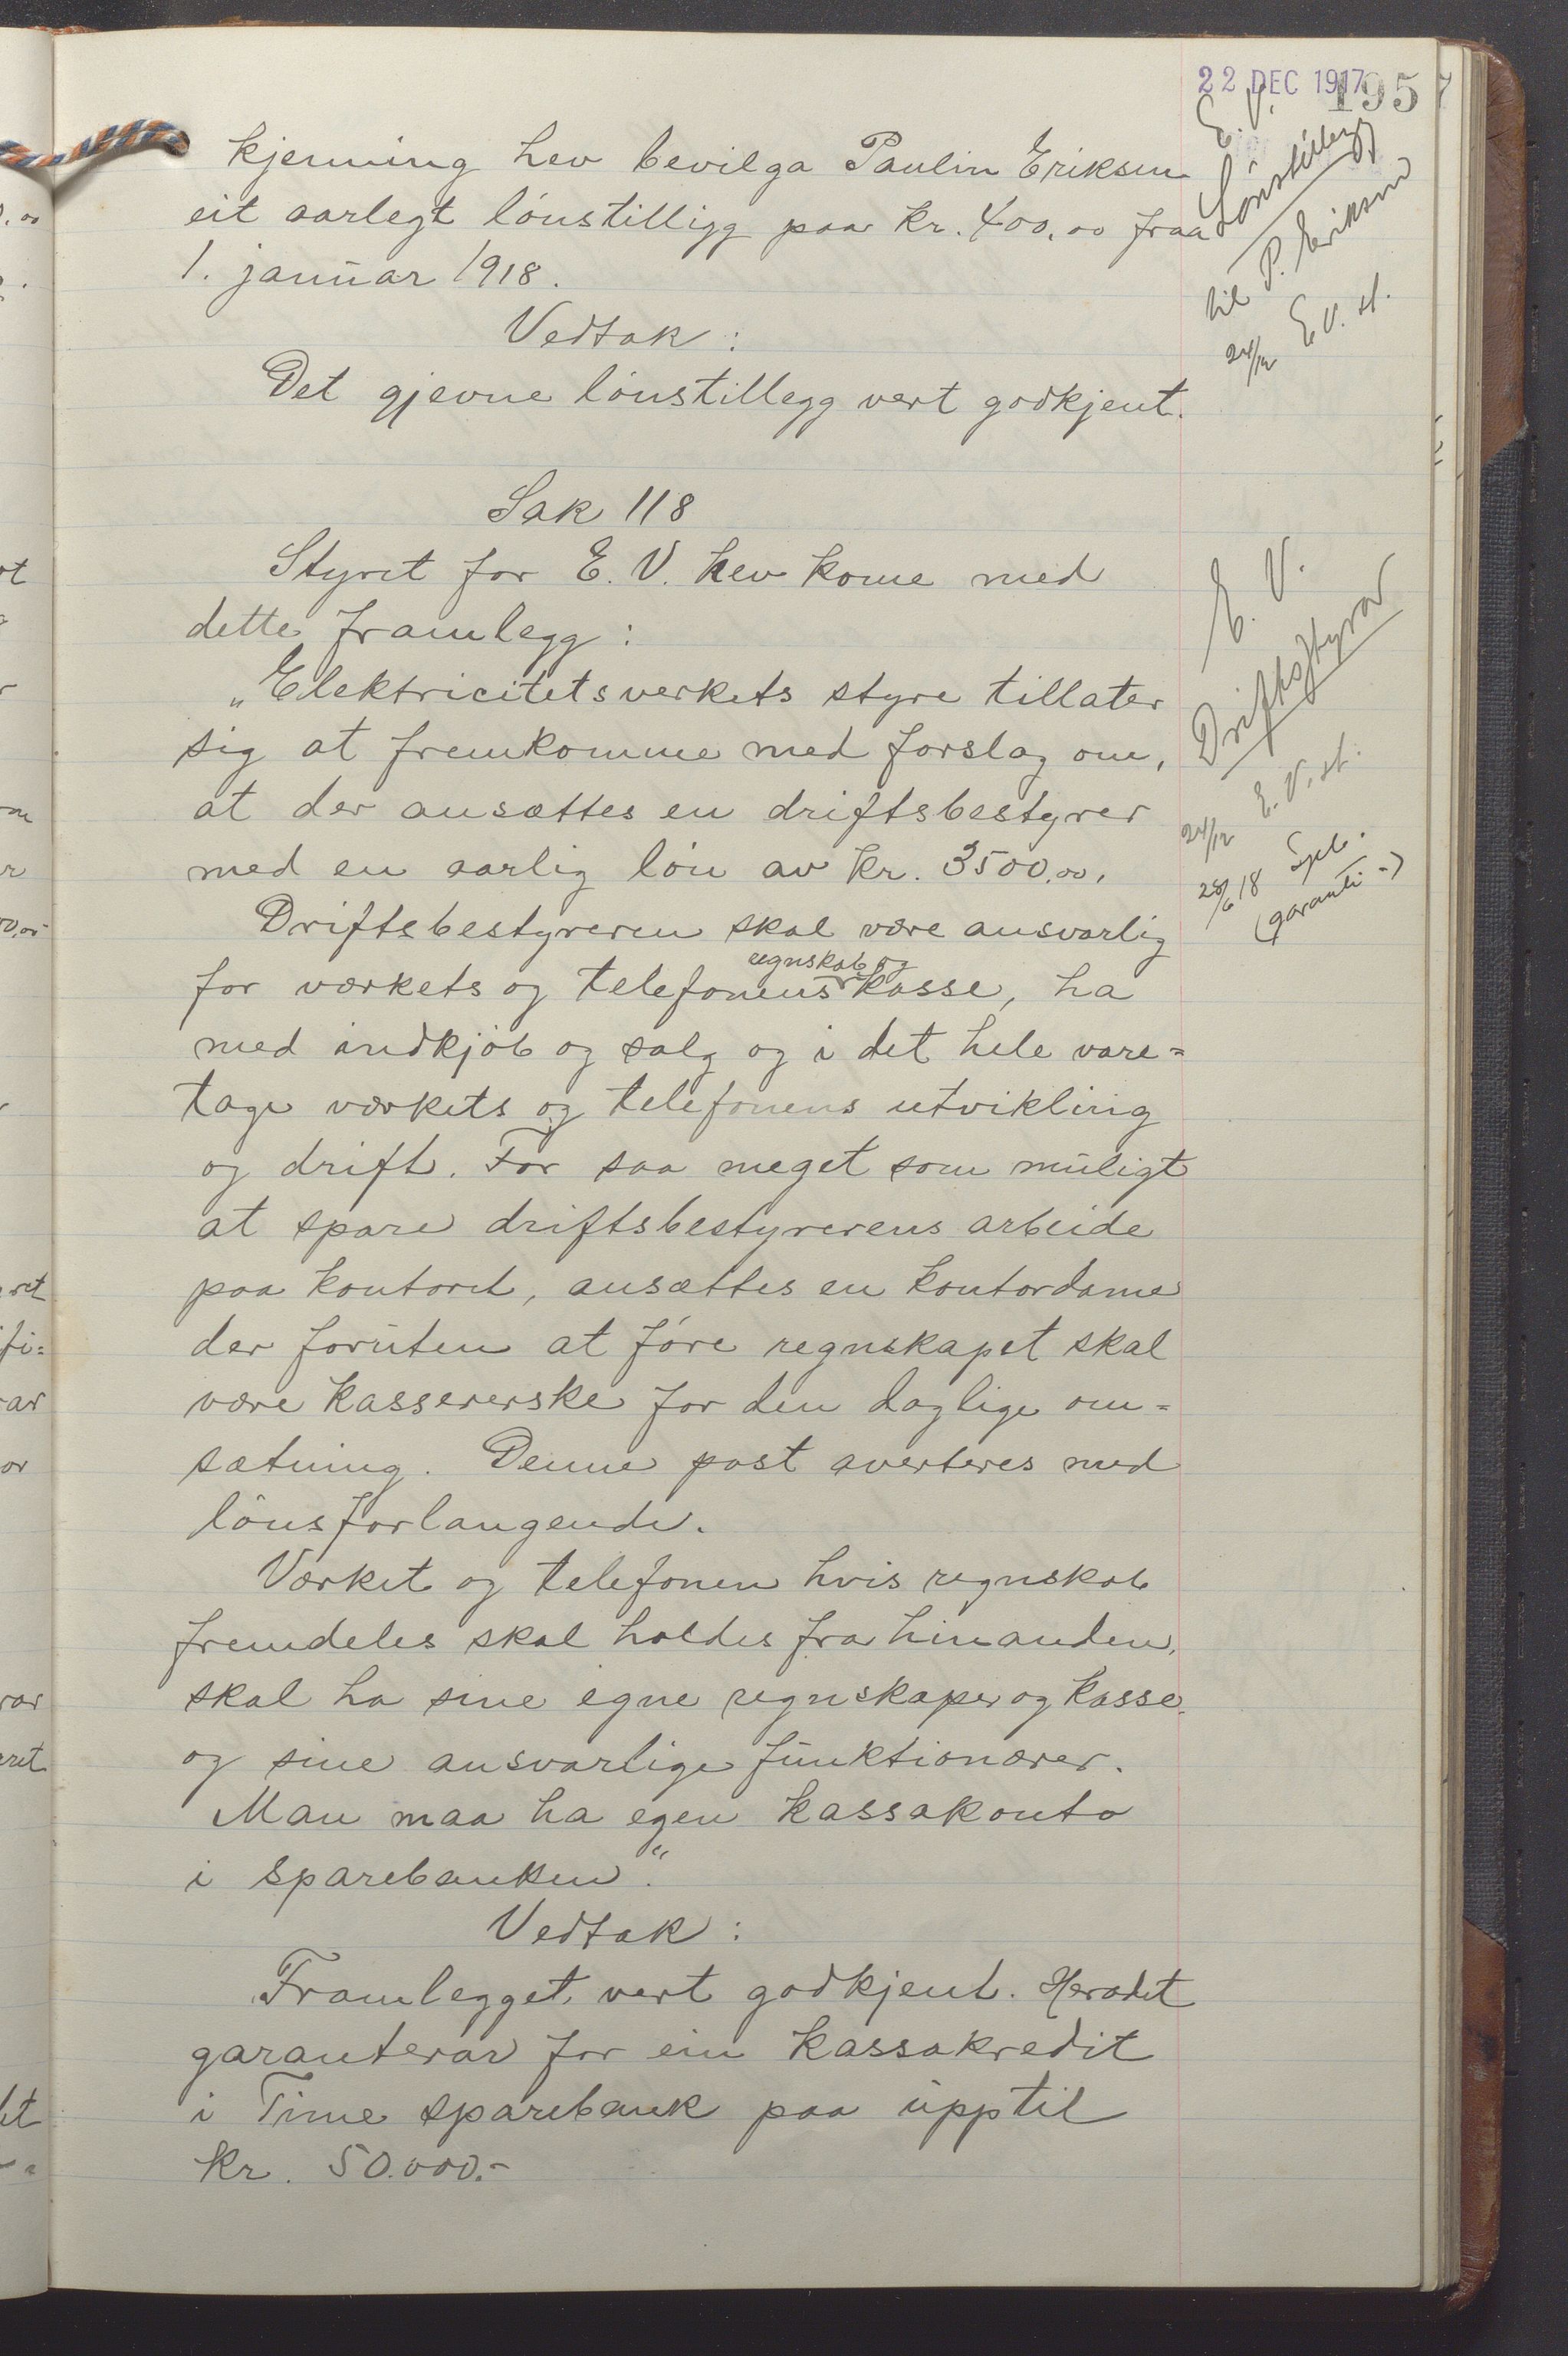 22 DEC 1917
195
kjenning hev bevilga Paulin Eriksen
eit aarlegt lónstilligg paa kr. 400,00 fraa
1. januar 1918.
Vedtak:
Det gjevne lónstillegg vert godkjent.
E. V.
Lónstillegg
til P. Eriksen
24/12 E V. st.
Sak 118
Styret for E. V. hev kome med
dette framlegg:
„Elektricitetsverkets styre tillater
sig at fremkomme med forslag om,
at der ansættes en driftsbestyrer
med en aarlig lón av kr. 3500,00.
Driftsbestyreren skal være ansvarlig
regnskab og
for værkets og telefonens kasse, ha
med indkjób og salg og i det hele vare=
tage værkets og telefonens utvikling
og drift. For saa meget som muligt
at spare driftsbestyrerens arbeide
paa kontoret, ansættes en kontordame
der foruten at fóre regnskapet skal
være kassererske for den daglige om=
sætning. Denne post averteres med
lónsforlangende.
Værket og telefonen hvis regnskab
fremdeles skal holdes fra hinanden,
skal ha sine egne regnskaper og kasse,
og sine ansvarlige funktionærer.
Man maa ha egen kassakonto
i sparebanken".
Vedtak:
Framlegget vert godkjent. Heradet
garanterar for ein kassakredit
i Time sparebank paa upptil
kr. 50.000.-
E. V.
Driftsstyrar
24/12 E. V. st.
28/6 18 Spb.
(garanti-)